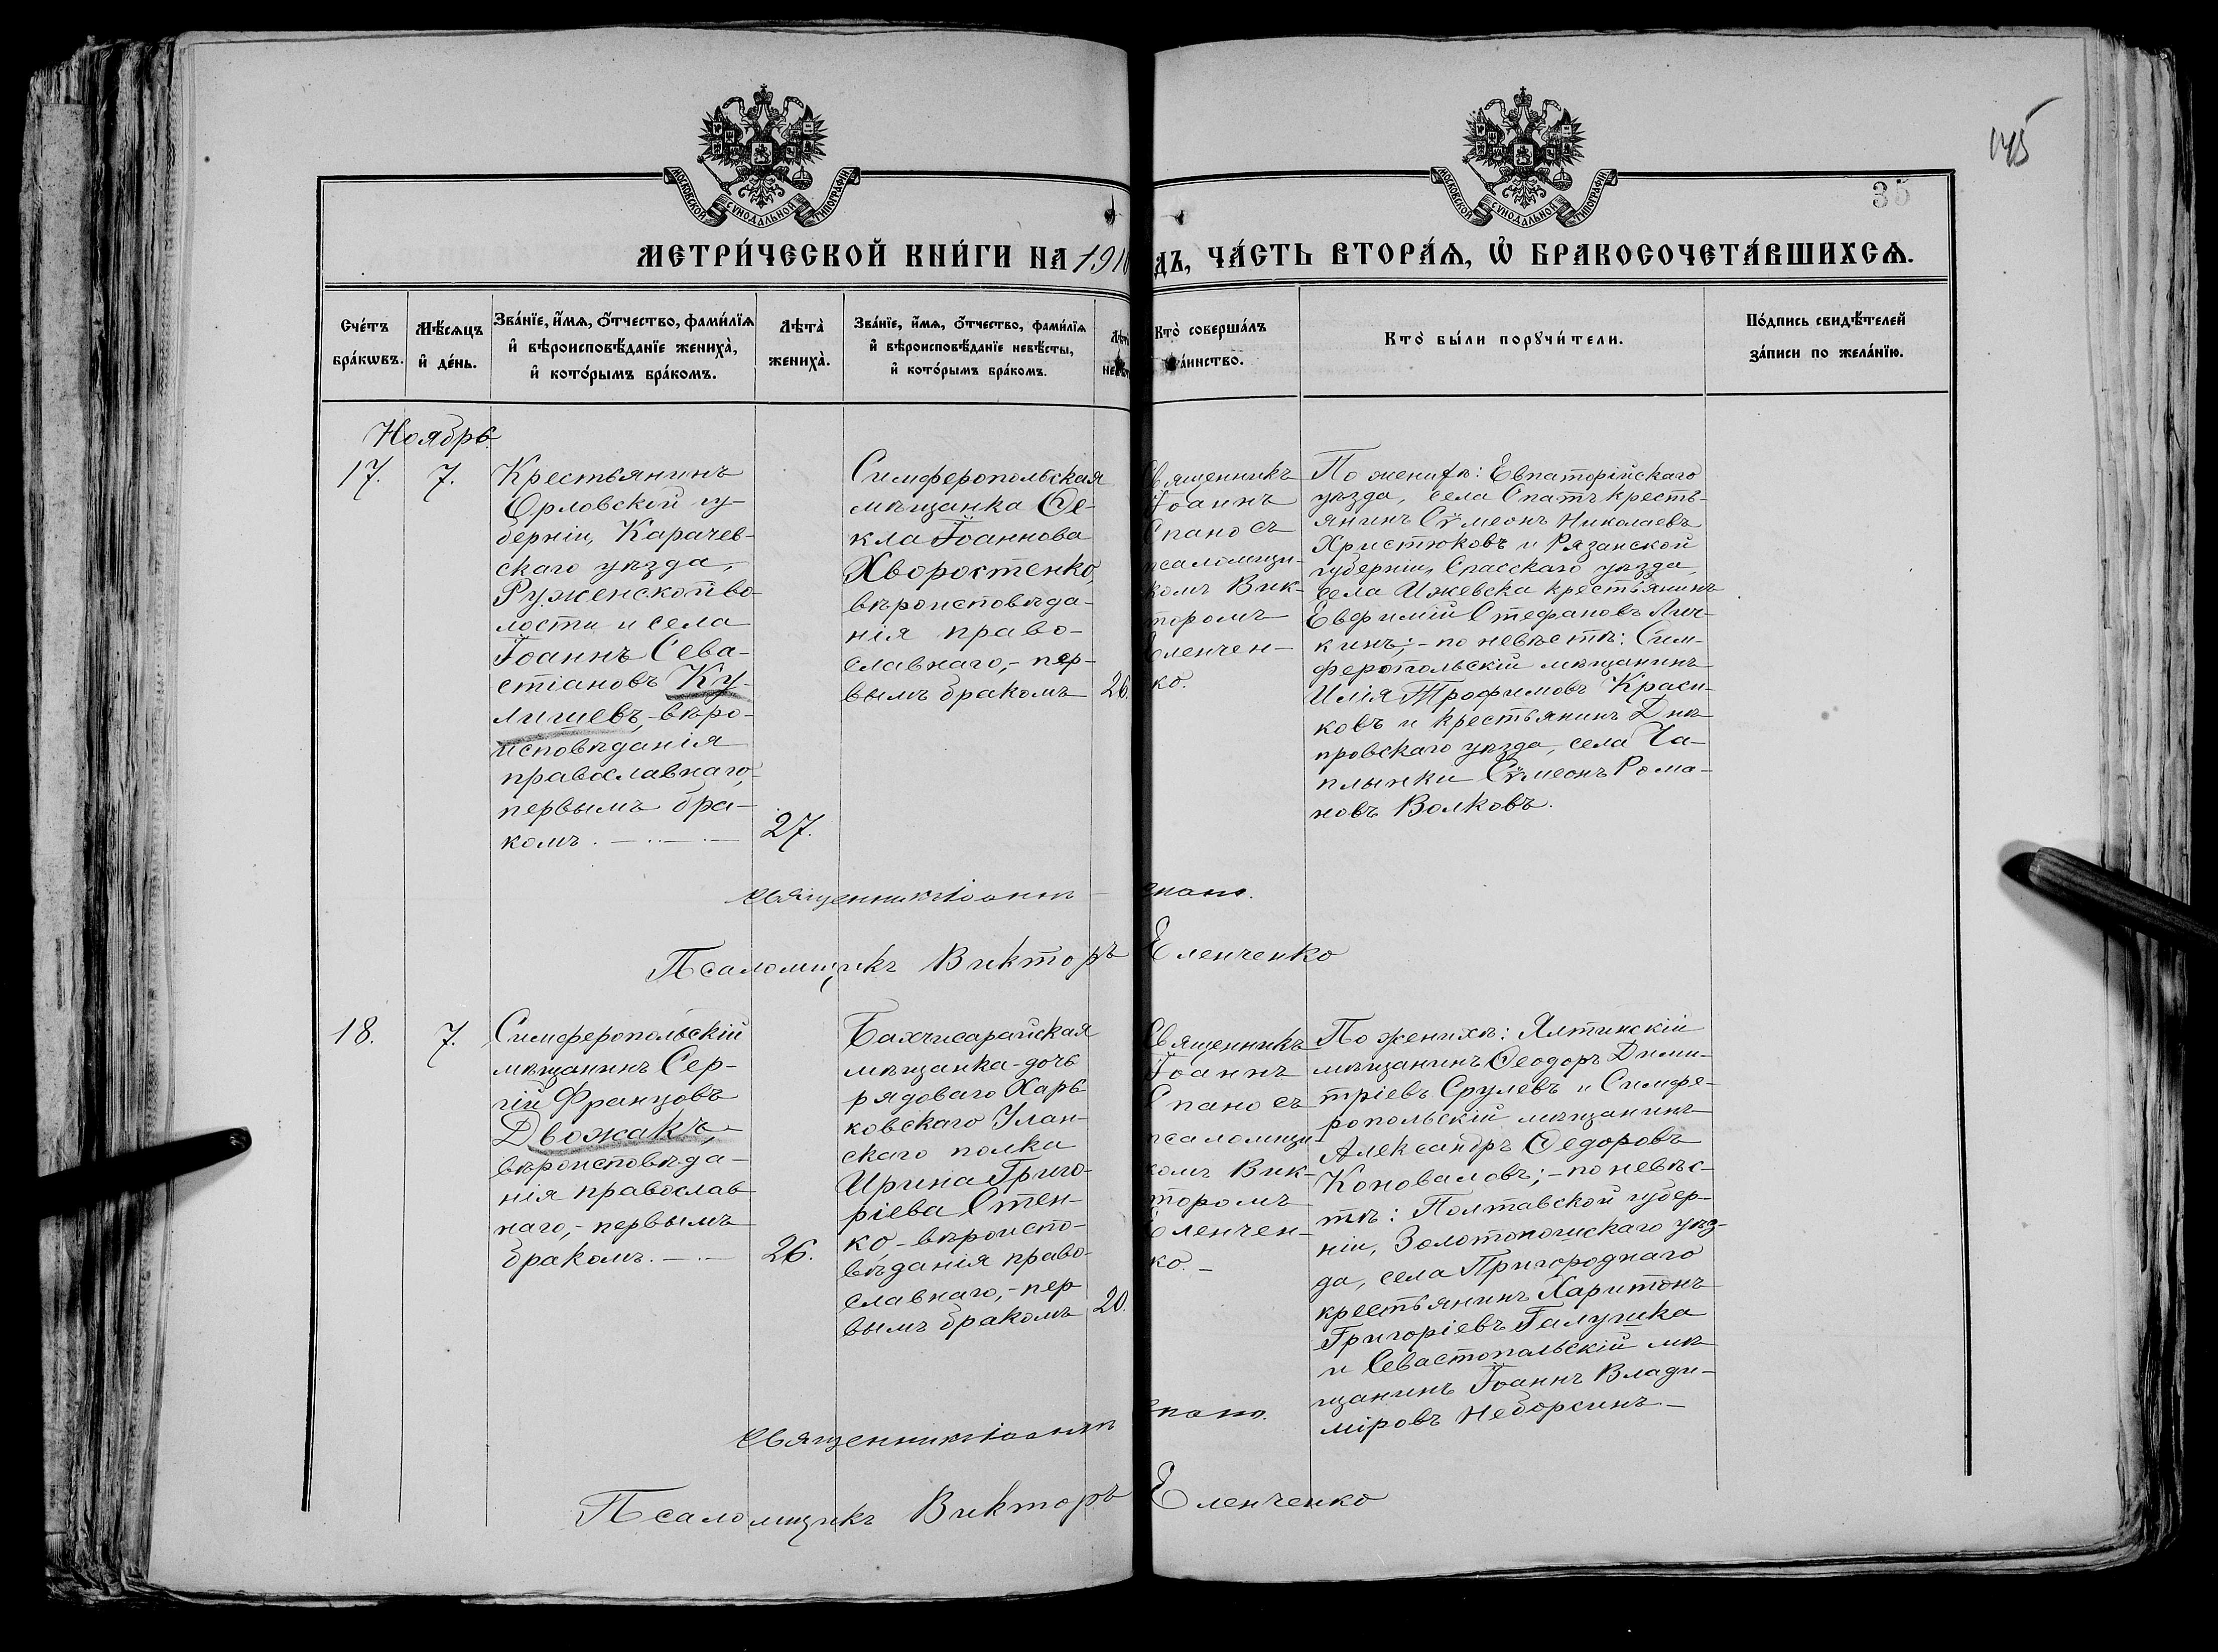 145
35
МОСКОВСКОЙ СѴНОДАЛЬНОЙ ТИПОГРАФІИ
МОСКОВСКОЙ СѴНОДАЛЬНОЙ ТИПОГРАФІИ
МЕТРИ́ЧЕСКОЙ КНИ́ГИ НА 1910
ДЪ, ЧА́СТЬ ВТОРА́Ѧ, Ѡ҆ БРАКОСОЧЕТА́ВШИХСѦ.
Сче́тъ бра́кѡвъ.
Мѣ́сѧцъ и҆ де́нь.
Зва́нїе, и҆́мѧ, ѻ҆́тчество, фами́лїѧ
и҆ вѣроисповѣ́данїе жениха̀,
и҆ кото́рымъ бра́комъ.
Лѣта̀ жениха̀.
Зва́нїе, и҆́мѧ, ѻ҆́тчество, фами́лїѧ
и҆ вѣроисповѣ́данїе невѣ́сты,
и҆ кото́рымъ бра́комъ.
Кто̀ соверша́лъ
а́инство.
Кто̀ бы́ли порꙋчи́тели.
По́дпись свидѣ́телей
за́писи по жела́нїю.
Ноябрь
17.
7.
Крестьянинъ
Орловской гу-
берніи, Карачев-
скаго уѣзда,
Руженской во-
лости и села
Іоаннъ Сева-
стіановъ Ку-
лишевъ,-вѣро-
исповѣданія
православнаго,-
первымъ бра-
комъ.
27.
Симферопольская
мѣщанка Ѳе-
кла Іоаннова
Хворостенко,
вѣроисповѣда-
нія право-
славнаго,- пер-
вымъ бракомъ
26.
Священникъ
Іоаннъ
Спано съ
псаломщи-
комъ Вик-
торомъ
Еленчен-
ко.
По женихѣ: Евпаторійскаго
уѣзда, села Спатъ кресть-
янинъ Сѵмеонъ Николаевъ
Христюковъ и Рязанской
губерніи, Спасскаго уѣзда,
села Ижевска крестьянинъ
Евфимій Стефановъ Лич-
кинъ;- по невѣстѣ: Сим-
феропольскій мѣщанинъ
Илія Трофимовъ Краси-
ковъ и крестьянинъ Днѣ-
провскаго уѣзда, села Ча-
плынки Сѵмеонъ Рома-
новъ Волковъ.
Священникъ Іоаннъ Спано.
Псаломщикъ Викторъ Еленченко
18.
7.
Симферопольскій
мѣщанинъ Сер-
гій Францовъ
Двожакъ,-
вѣроисповѣда-
нія православ
наго,- первымъ
бракомъ.
26.
Бахчисарайская
мѣщанка-дочь
рядоваго Харь
ковскаго Улан-
скаго полка
Ирина Григо-
ріева Стен-
ко,-вѣроиспо-
вѣданія право-
славнаго,- пер
вымъ бракомъ
20.
Священникъ
Іоаннъ
Спано съ
псаломщи
комъ Вик-
торомъ
Еленчен-
ко.
По женихѣ: Ялтинскій
мѣщанинъ Ѳеодоръ Дими-
тріевъ Срулевъ и Симфе-
ропольскій мѣщанинъ
Александръ Ѳедоровъ
Коноваловъ;- по невѣс-
тѣ: Полтавской губер-
ніи, Золотоношскаго уѣз-
да, села Пригороднаго
крестьянинъ Харитонъ
Григоріевъ Галушка
и Севастопольскій мѣ
щанинъ Іоаннъ Влади-
міровъ Неборсинъ.-
Священникъ Іоаннъ Спано.
Псаломщикъ Викторъ Еленченко